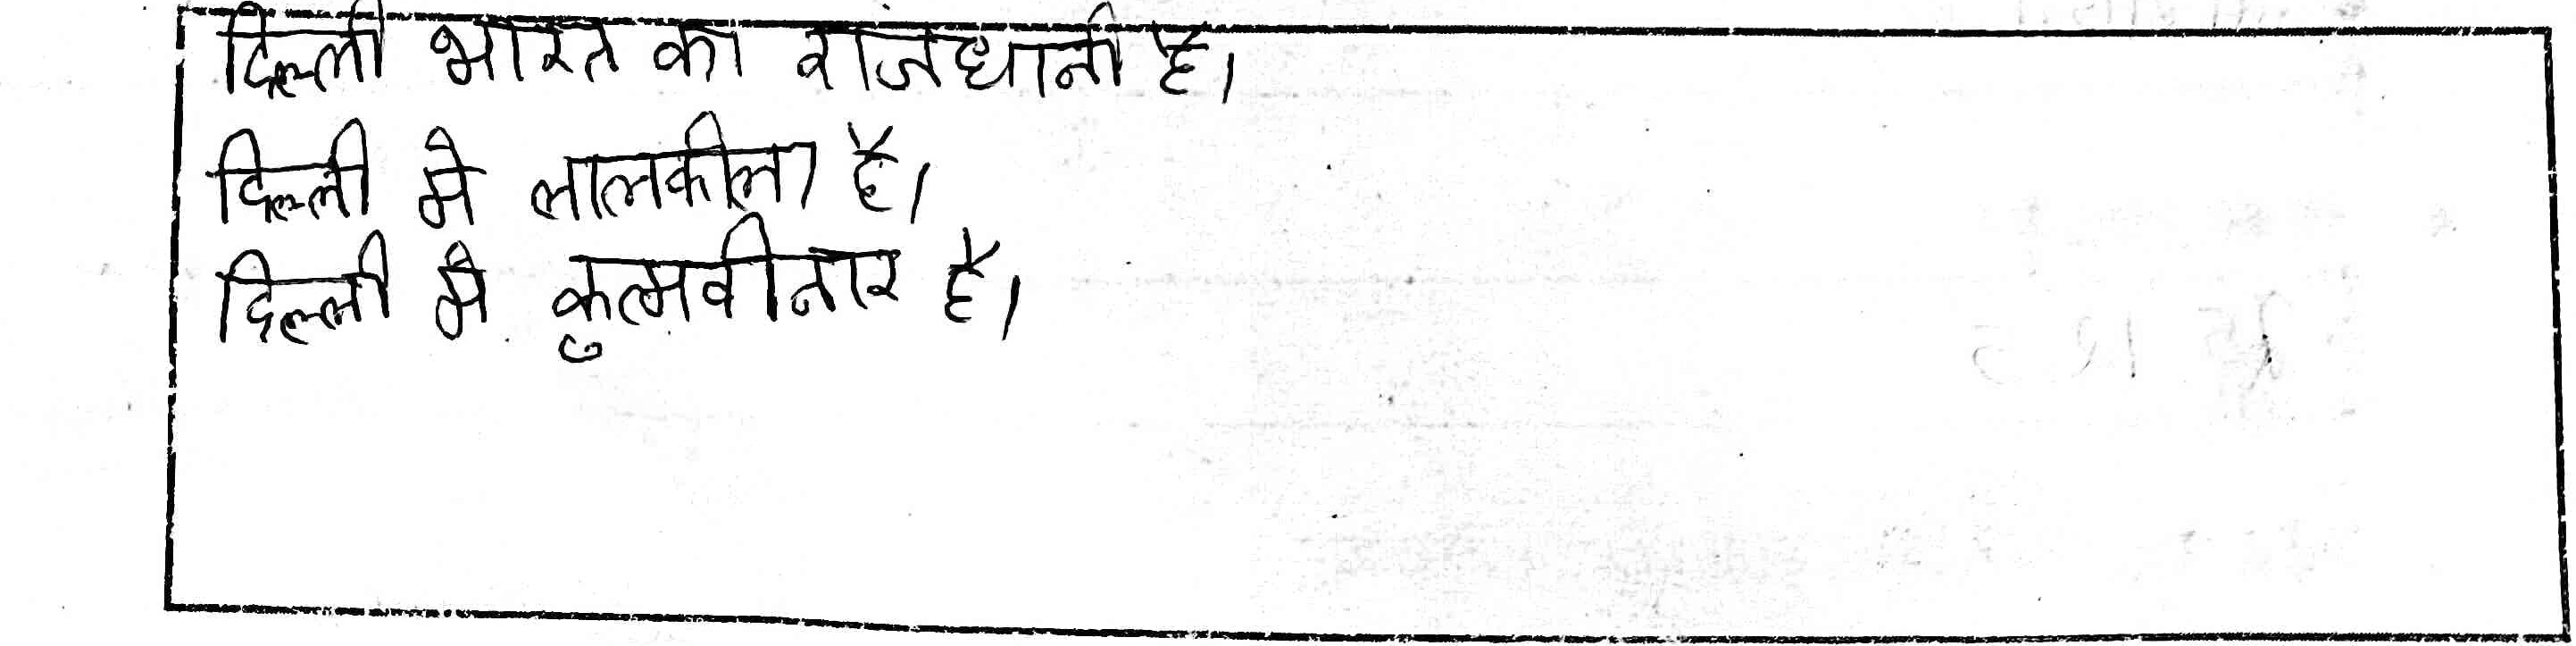 दिल्ली भारत का राजधानी है।
दिल्ली मे लालकीला है।
दिल्ली मे कुत्मवीनार है।